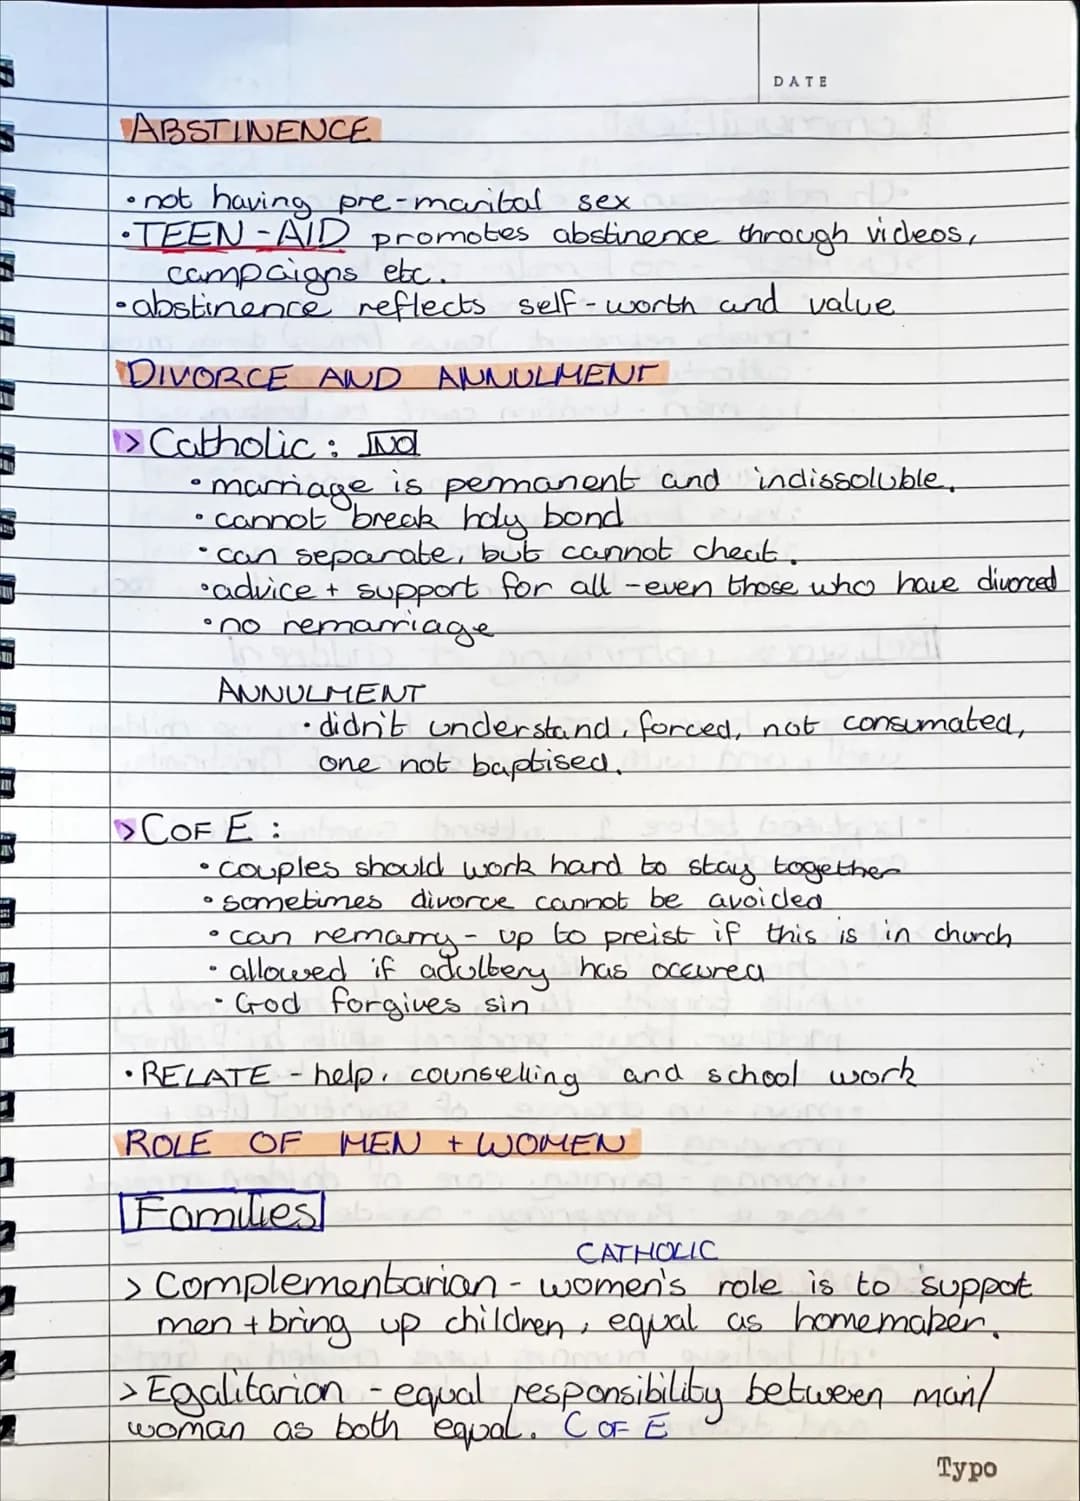 DATE
ABSTINENCE
• not having pre-marital sex
• TEEN-AID promotes abstinence through videos,
campaigns etc.
• abstinence reflects self-worth and value
DIVORCE AND ANNULMENT
> Catholic: NO
• marriage is permanent and indissoluble.
• cannot break holy bond
• can separate, but cannot cheat.
• advice + support for all - even those who have divorced
• no remarriage
ANNULMENT
• didn't understand, forced, not consumated,
one not baptised.
> C OF E:
• couples should work hard to stay together
• sometimes divorce cannot be avoided
• can remarry - up to preist if this is in church
• allowed if adultery has occured
• God forgives sin
• RELATE - help, counselling and school work
ROLE OF MEN + WOMEN
Families
CATHOLIC
> Complementarian - women's role is to support
men + bring up children, equal as homemaker.
> Egalitarian - equal responsibility between man/
woman as both equal. C OF E
Typo